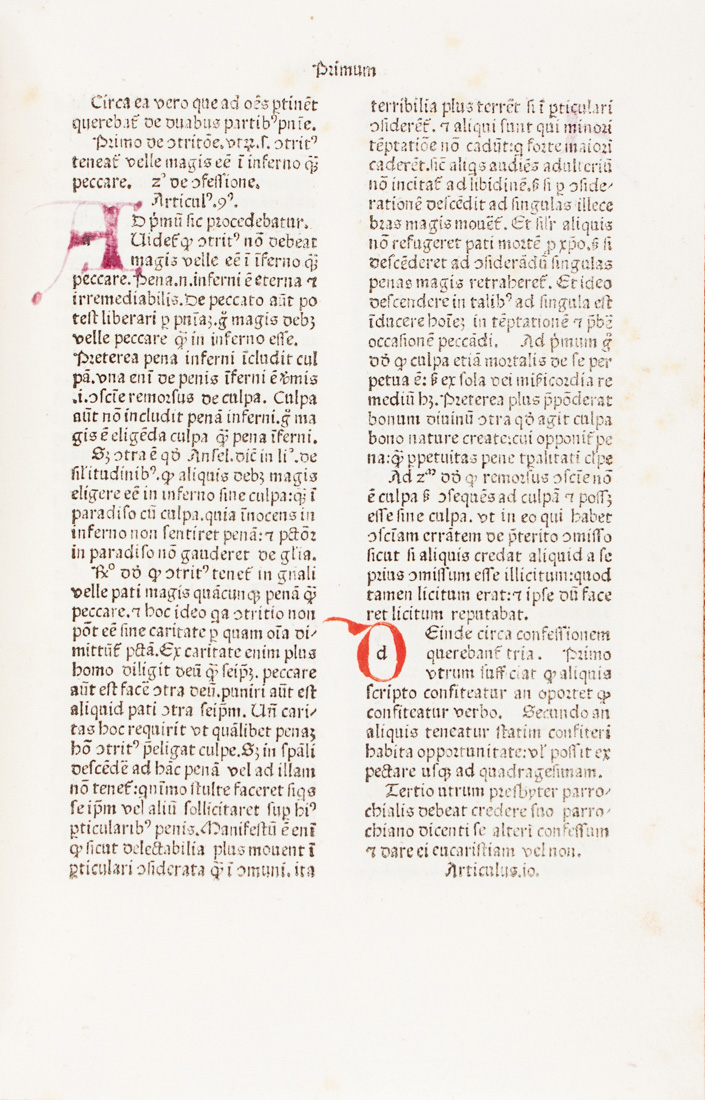 Primum
Circa ea vero que ad oēs ꝑtinēt
querebat̃ de duabus partibꝰ pn̄ie.
Primo de ↄtritōe. vtꝝ. s. ↄtritꝰ
teneat̃ velle magis eē ī inferno q̄ꝫ
peccare. zꝰ de ↄfessione.
Articulꝰ.9ꝰ.
AD p̄mū sic procedebatur.
Uidet̃ ꝙ ↄtritꝰ nō debeat
magis velle eē ī īferno q̄ꝫ
peccare. Pena.n.inferni ē eterna ⁊
irremediabilis. De peccato aūt po
test liberari ꝑ pn̄iaꝫ. g̊ magis debꝫ
velle peccare q̄ꝫ in inferno esse.
Preterea pena inferni īcludit cul
pā. vna enī de penis īferni ē v̓mis
.i. ↄscīe remorsus de culpa. Culpa
aūt nō includit penā inferni. g̊ ma
gis ē eligēda culpa q̄ꝫ pena īferni.
Sꝫ ↄtra ē qḋ Ansel. dic̄ in liᵒ. de
sil̓itudinibꝰ. ꝙ aliquis debꝫ magis
eligere eē in inferno sine culpa: q̄ꝫ ī
paradiso cū culpa. quia īnocens in
inferno non sentiret penā: ⁊ pctōr
in paradiso nō gauderet de gl̓ia.
Rᵒ dḋ ꝙ ↄtritꝰ tenet̃ in gn̄ali
velle pati magis quācunqꝫ penā q̄ꝫ
peccare. ⁊ hoc ideo qa ↄtritio non
pōt eē sine caritate ꝑ quam oīa di⸗
mittūt̃ pctā. Ex caritate enim plus
homo diligit deū q̄ꝫ seipꝫ. peccare
aūt est facē ↄtra deū. puniri aūt est
aliquid pati ↄtra seipm̄. Un̄ cari⸗
tas hoc requirit vt quālibet penaꝫ
hō ↄtritꝰ p̄eligat culpe. Sꝫ in sp̄ali
descēdē ad hāc penā vel ad illam
nō tenet̃: quīmo stulte faceret siqs
se ip̄m vel aliū sollicitaret suꝑ hiꝰ
ꝑticularibꝰ penis. Manifestū ē enī
ꝙ sicut delectabilia plus mouent ī
ꝑticulari ↄsiderata q̄ꝫ ī ↄmuni. ita
terribilia plus terrēt si ī ꝑticulari
ↄsiderēt̃. ⁊ aliqui sunt qui minori
tēptatiōe nō cadūt: q forte maiori
caderēt. sic̄ aliqs audiēs adulteriū
nō incitat̃ ad libidinē. s̄ si ꝑ ↄside⸗
rationē descēdit ad singulas illece
bras magis mouet̃. Et sil̓r aliquis
nō refugeret pati mortē ꝓ xp̄o. s̄ si
descēderet ad ↄsiderādū singulas
penas magis retraheret̃. Et ideo
descendere in talibꝰ ad singula est
īducere hoīeꝫ in tēptationē ⁊ p̄bē
occasionē peccādi. Ad p̄mum g̊
dḋ ꝙ culpa etiā mortalis de se per
petua ē: s̄ ex sola dei miſ̓icordia re
mediū hꝫ. Preterea plus p̄pōderat
bonum diuinū ↄtra qḋ agit culpa
bono nature create: cui opponit̃ pe
na: q̄ꝫ ꝑpetuitas pene tꝑalitati cl̓pe
Ad zᵐ dḋ ꝙ remorsus ↄscīe nō
ē culpa s̄ ↄsequēs ad culpā ⁊ possꝫ
esse sine culpa. vt in eo qui habet
ↄscīam errātem de p̄terito ↄmisso
sicut si aliquis credat aliquid a se
prius ↄmissum esse illicitum: quod
tamen licitum erat: ⁊ ipse dū face
ret licitum reputabat.
dEinde circa confessionem
querebant̃ tria. Primo
vtrum suff ciat ꝙ aliquis
scripto confiteatur an oportet ꝙ
confiteatur verbo. Secundo an
aliquis teneatur statim confiteri
habita opportunitate: vl̓ possit ex
pectare usqꝫ ad quadragesimam.
Tertio utrum presbyter parro⸗
chialis debeat credere suo parro⸗
chiano dicenti se alteri confessum
⁊ dare ei eucaristiam vel non.
Articulus.io.